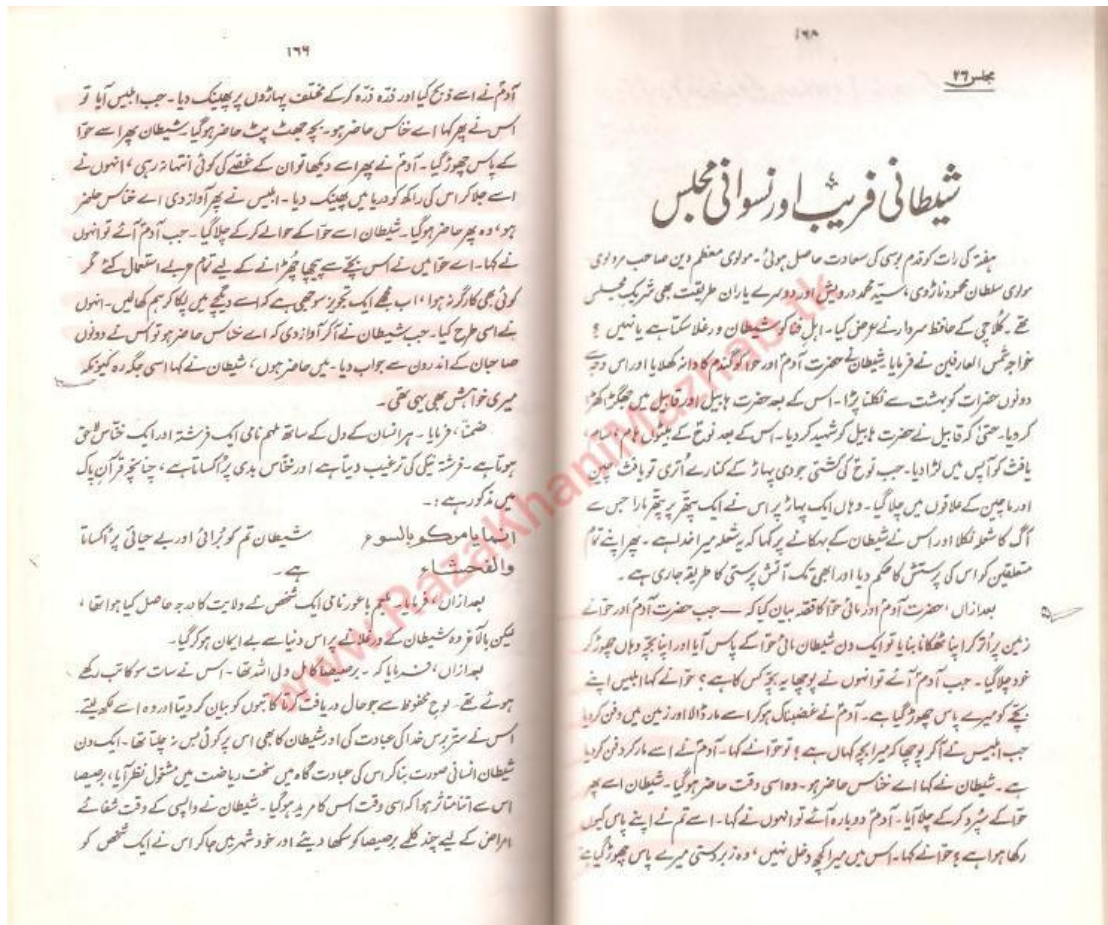 ۱۶۸
مجلس ۲۶
شیطانی فریب اور نسوانی مجلس
ہفتہ کی رات کو قدم بوسی کی سعادت حاصل ہوئی۔ مولوی معظم دین صاحب مرولوی
مولوی سلطان محمود ناڑوی، سید محمد درویش اور دوسرے یاران طریقت بھی شریک مجلس
تھے۔ کلاچی کے حافظ سردار نے عرض کیا۔ اہل فنا کو شیطان ورغلا سکتا ہے یا نہیں ؟
خواجہ شمس العارفین نے فرمایا شیطان نے حضرت آدمؑ اور حوا کو گندم کا دانہ کھلایا اور اس وجہ سے
دونوں حضرات کو بہشت سے نکلنا پڑا۔ اس کے بعد حضرت ہابیل اور قابیل میں جھگڑا کھڑا
کر دیا۔ حتیٰ کہ قابیل نے حضرت ہابیل کو شہید کر دیا۔ اس کے بعد نوحؑ کے بیٹوں ہام، سام،
یافث کو آپس میں لڑا دیا۔ جب نوحؑ کی کشتی جودی پہاڑ کے کنارے اُتری تو یافث چین
اور ماچین کے علاقوں میں چلا گیا۔ وہاں ایک پہاڑ پر اس نے ایک پتھر پر پتھر مارا جس سے
آگ کا شعلہ نکلا اور اس نے شیطان کے بہکانے پر کہا کہ یہ شعلہ میرا خدا ہے۔ پھر اپنے تمام
متعلقین کو اس کی پرستش کا حکم دیا اور ابھی تک آتش پرستی کا طریقہ جاری ہے۔
بعد ازاں، حضرت آدمؑ اور مائی حوا کا قصہ بیان کیا کہ — جب حضرت آدمؑ اور حوا نے
زمین پر اُتر کر اپنا ٹھکانا بنایا تو ایک دن شیطان مائی حوا کے پاس آیا اور اپنا بچہ وہاں چھوڑ کر
خود چلا گیا۔ جب آدمؑ آئے تو انہوں نے پوچھا یہ بچہ کس کا ہے ؟ حوا نے کہا ابلیس اپنے
بچے کو میرے پاس چھوڑ گیا ہے۔ آدمؑ نے غضبناک ہو کر اسے مار ڈالا اور زمین میں دفن کر دیا
جب ابلیس نے آکر پوچھا کہ میرا بچہ کہاں ہے ؟ تو حوا نے کہا۔ آدمؑ نے اسے مار کر دفن کر دیا
ہے۔ شیطان نے کہا اے خناس حاضر ہو۔ وہ اسی وقت حاضر ہو گیا۔ شیطان اسے پھر
حوا کے سپرد کر کے چلا آیا۔ آدمؑ دوبارہ آئے تو انہوں نے کہا۔ اسے تم نے اپنے پاس کیوں
رکھا ہوا ہے ؟ حوا نے کہا۔ اس میں میرا کچھ دخل نہیں، وہ زبردستی میرے پاس چھوڑ گیا ہے
۱۶۹
آدمؑ نے اسے ذبح کیا اور ذرّہ ذرّہ کر کے مختلف پہاڑوں پر پھینک دیا۔ جب ابلیس آیا تو
اس نے پھر کہا اے خناس حاضر ہو۔ بچہ جھٹ پٹ حاضر ہو گیا۔ شیطان پھر اسے حوا
کے پاس چھوڑ گیا۔ آدمؑ نے پھر اسے دیکھا تو ان کے غصے کی کوئی انتہا نہ رہی، انہوں نے
اسے جلا کر اس کی راکھ کو دریا میں پھینک دیا۔ ابلیس نے پھر آواز دی اے خناس حاضر
ہو، وہ پھر حاضر ہو گیا۔ شیطان اسے حوا کے حوالے کر کے چلا گیا۔ جب آدمؑ آئے تو انہوں
نے کہا۔ اے حوا میں نے اس بچے سے پیچھا چھڑانے کے لیے تمام حربے استعمال کئے مگر
کوئی بھی کارگر نہ ہوا، اب مجھے ایک تجویز سوجھی ہے کہ اسے دیگچے میں پکا کر ہم کھا لیں۔ انہوں
نے اسی طرح کیا۔ جب شیطان نے آکر آواز دی کہ اے خناس حاضر ہو تو اس نے دونوں
صاحبان کے اندرون سے جواب دیا۔ میں حاضر ہوں، شیطان نے کہا اسی جگہ رہ کیونکہ
میری خواہش بھی یہی تھی۔
ضمناً، فرمایا۔ ہر انسان کے دل کے ساتھ ملہم نامی ایک فرشتہ اور ایک خناس لاحق
ہوتا ہے۔ فرشتہ نیکی کی ترغیب دیتا ہے اور خناس بدی پر اُکساتا ہے، چنانچہ قرآن پاک
میں مذکور ہے :۔
انما یامرکم بالسوء شیطان تم کو بُرائی اور بے حیائی پر اُکساتا
والفحشاء ہے۔
بعد ازاں، فرمایا۔ بلعم باعور نامی ایک شخص نے ولایت کا درجہ حاصل کیا ہوا تھا،
لیکن بالآخر وہ شیطان کے ورغلانے پر اس دنیا سے بے ایمان ہو کر گیا۔
بعد ازاں، فرمایا کہ۔ برصیصا کامل ولی اللہ تھا۔ اس نے سات سو کاتب رکھے
ہوئے تھے۔ لوح محفوظ سے جو حال دریافت کرتا کاتبوں کو بیان کر دیتا اور وہ اسے لکھ لیتے۔
اس نے ستر برس خدا کی عبادت کی اور شیطان کا بھی اس پر کوئی بس نہ چلتا تھا۔ ایک دن
شیطان انسانی صورت بنا کر اس کی عبادت گاہ میں سخت ریاضت میں مشغول نظر آیا، برصیصا
اس سے اتنا متاثر ہوا کہ اسی وقت اس کا مرید ہو گیا۔ شیطان نے واپسی کے وقت شفائے
امراض کے لیے چند کلمے برصیصا کو سکھا دیئے اور خود شہر میں جا کر اس نے ایک شخص کو
www.RazaKhaniMazhab.tk